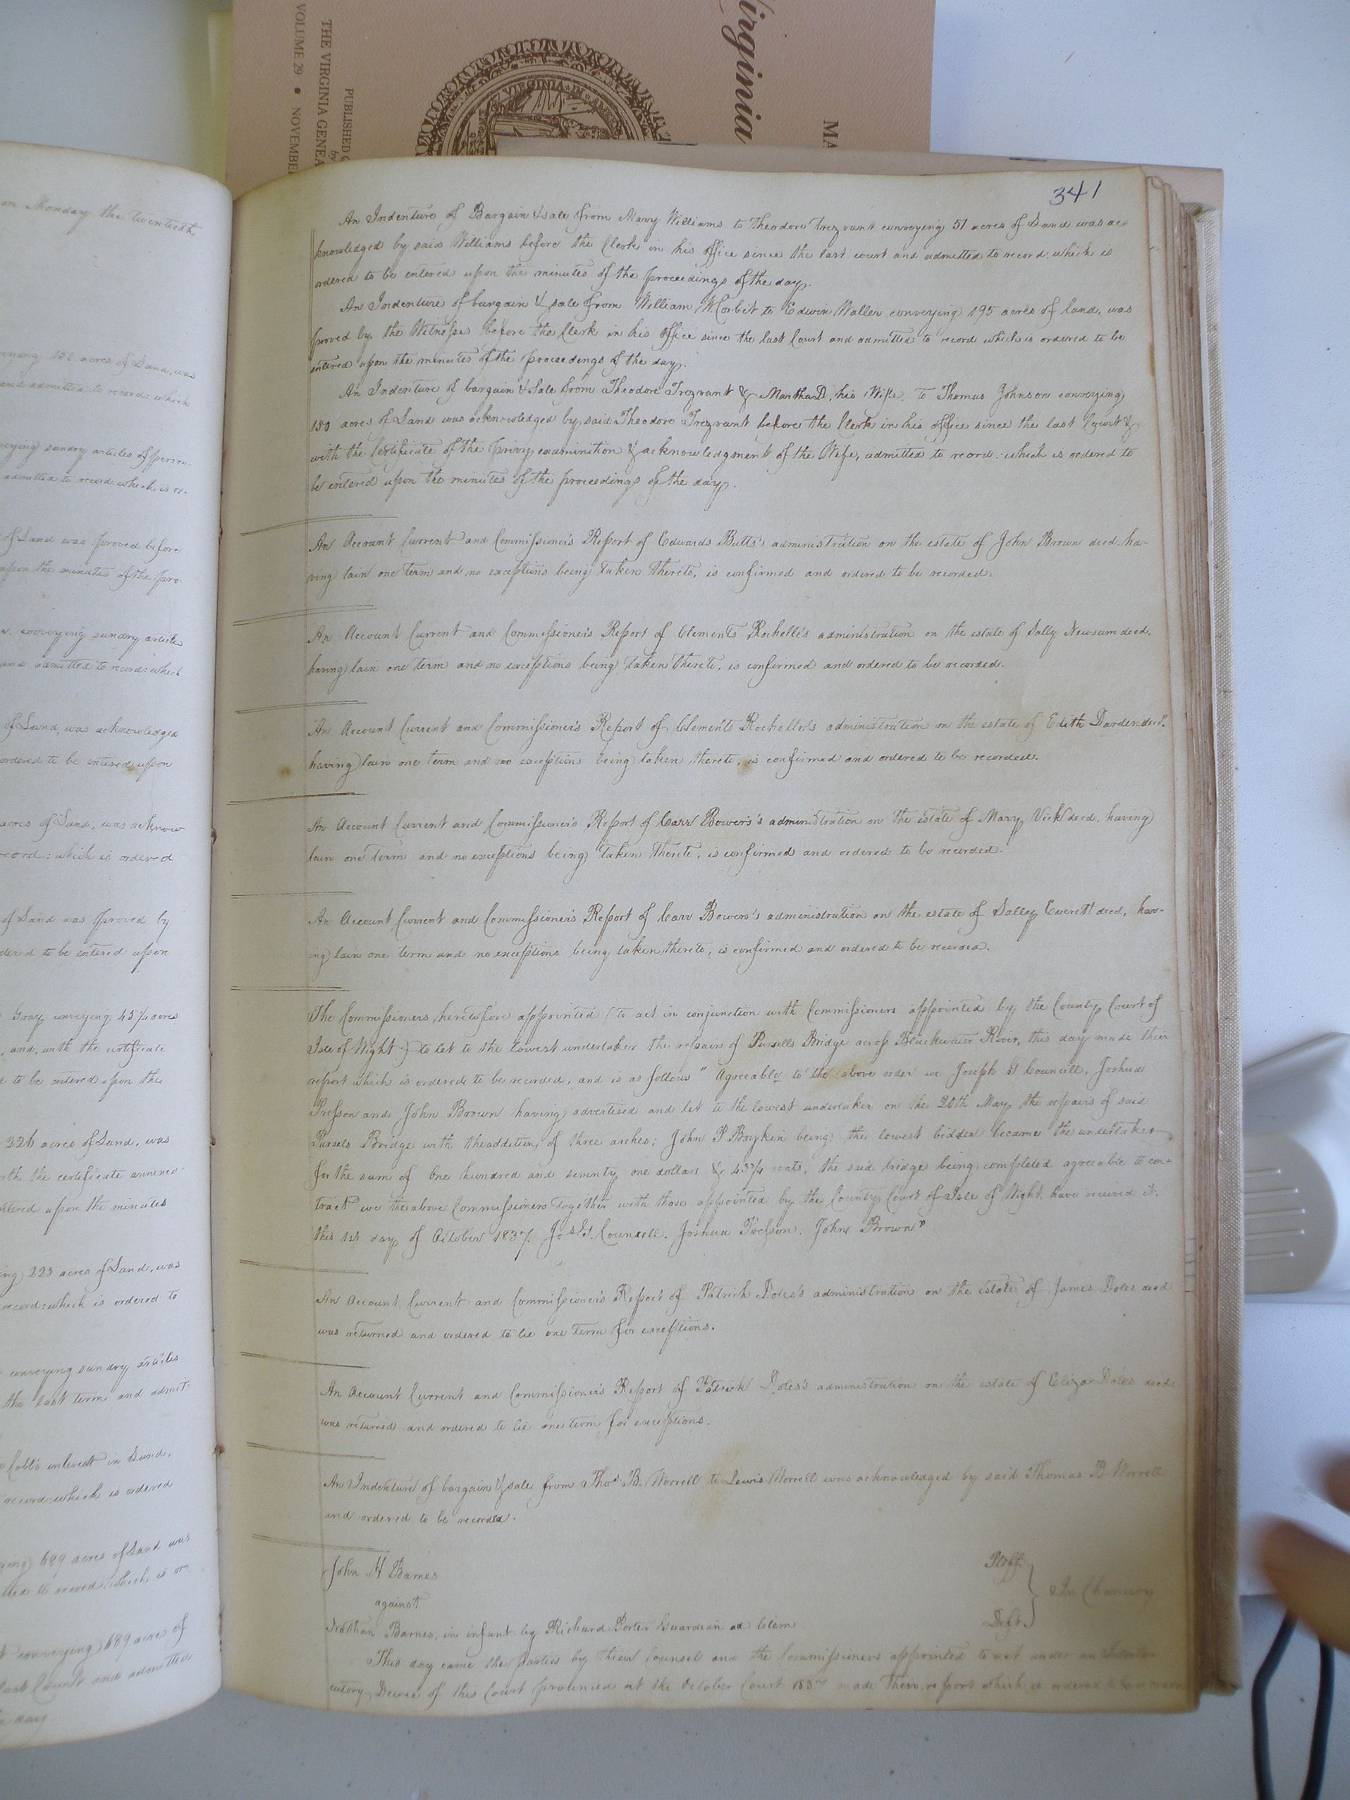 Virginia
MA
PUBLISHED
by
THE VIRGINIA GENEA
VOLUME 29 • NOVEMBER
VIRGINIA
on Monday the twentieth
151 acres of Land, was
and admitted to record: which
sundry articles of person-
admitted to record: which is or-
of Land was proved before
upon the minutes of the pro-
conveying sundry articles
and admitted to record: which
of Land, was acknowledged
ordered to be entered upon
acres of Land, was acknow
record: which is ordered
of Land was proved by
dered to be entered upon
Gray conveying 457 acres
and, with the certificate
to be entered upon the
326 acres of Land, was
with the certificate annexed
entered upon the minutes
223 acres of Land, was
record: which is ordered to
conveying sundry articles
the last term and admit-
Cobb's interest in Land,
record: which is ordered
689 acres of Land was
to record: which is or-
conveying 689 acres of
last Court and admitted
day
341
An Indenture of Bargain & sale from Mary Williams to Theodore Trezvant conveying 51 acres of Land was ac-
knowledged by said Williams before the Clerk in his office since the last court and admitted to record: which is
ordered to be entered upon the minutes of the proceedings of the day.
An Indenture of bargain & sale from William Norbit to Edwin Waller conveying 195 acres of land, was
proved by the Witnesses before the Clerk in his office since the last Court and admitted to record which is ordered to be
entered upon the minutes of the proceedings of the day.
An Indenture of bargain & Sale from Theodore Trezvant & Martha D. his Wife, to Thomas Johnson conveying
150 acres of Land was acknowledged by said Theodore Trezvant before the Clerk in his office since the last Court &
with the Certificate of the privy examination & acknowledgment of the Wife, admitted to record: which is ordered to
be entered upon the minutes of the proceedings of the day.
An Account Current and Commissioner's Report of Edwards Butts's administration on the estate of John Brown decd. ha-
ving lain one term and no exceptions being taken thereto, is confirmed and ordered to be recorded.
An Account Current and Commissioner's Report of Clements Rochelle's administration on the estate of Sally Newsum decd.
having lain one term and no exceptions being taken thereto, is confirmed and ordered to be recorded.
An Account Current and Commissioner's Report of Clements Rochelle's administration on the estate of Edith Darden decd.
having lain one term and no exceptions being taken thereto, is confirmed and ordered to be recorded.
An Account Current and Commissioner's Report of Carr Bowers's administration on the estate of Mary Vick decd. having
lain one term and no exceptions being taken thereto, is confirmed and ordered to be recorded.
An Account Current and Commissioner's Report of Carr Bowers's administration on the estate of Salley Everett decd, hav-
ing lain one term and no exceptions being taken thereto, is confirmed and ordered to be recorded.
The Commissioners heretofore appointed (to act in conjunction with Commissioners appointed by the County Court of
Isle of Wight) to let to the lowest undertaker the repairs of Pursells Bridge across Blackwater River, this day made their
report which is ordered to be recorded, and is as follows "Agreeably to the above order we Joseph G Councill, Joshua
Presson and John Brown having advertised and let to the lowest undertaker on the 20th May the repairs of said
Pursels Bridge with the addition of three arches; John P Boykin being the lowest bidder became the undertaker
for the sum of One hundred and seventy one dollars & 43 3/4 cents, the said bridge being completed agreeable to con-
tract we the above Commissioners together with those appointed by the County Court of Isle of Wight have received it.
this 1st day of October 1837. Jos. G. Councill. Joshua Presson. John Brown"
An Account Current and Commissioner's Report of Patrick Doles's administration on the Estate of James Doles decd
was returned and ordered to lie one term for exceptions.
An Account Current and Commissioner's Report of Patrick Doles's administration on the estate of Eliza Doles decd
was returned and ordered to lie one term for exceptions.
An Indenture of bargain & sale from Thos. B. Worrell to Lewis Worrell was acknowledged by said Thomas B Worrell
and ordered to be recorded.
John H Barnes Pltff
against In Chancery
Nathan Barnes, an infant by Richard Porter Guardian ad litem Deft
This day came the parties by their Counsel and the Commissioners appointed to act under an Interlo-
cutory Decree of this Court pronounced at the October Court 1837 made their report which is ordered to be